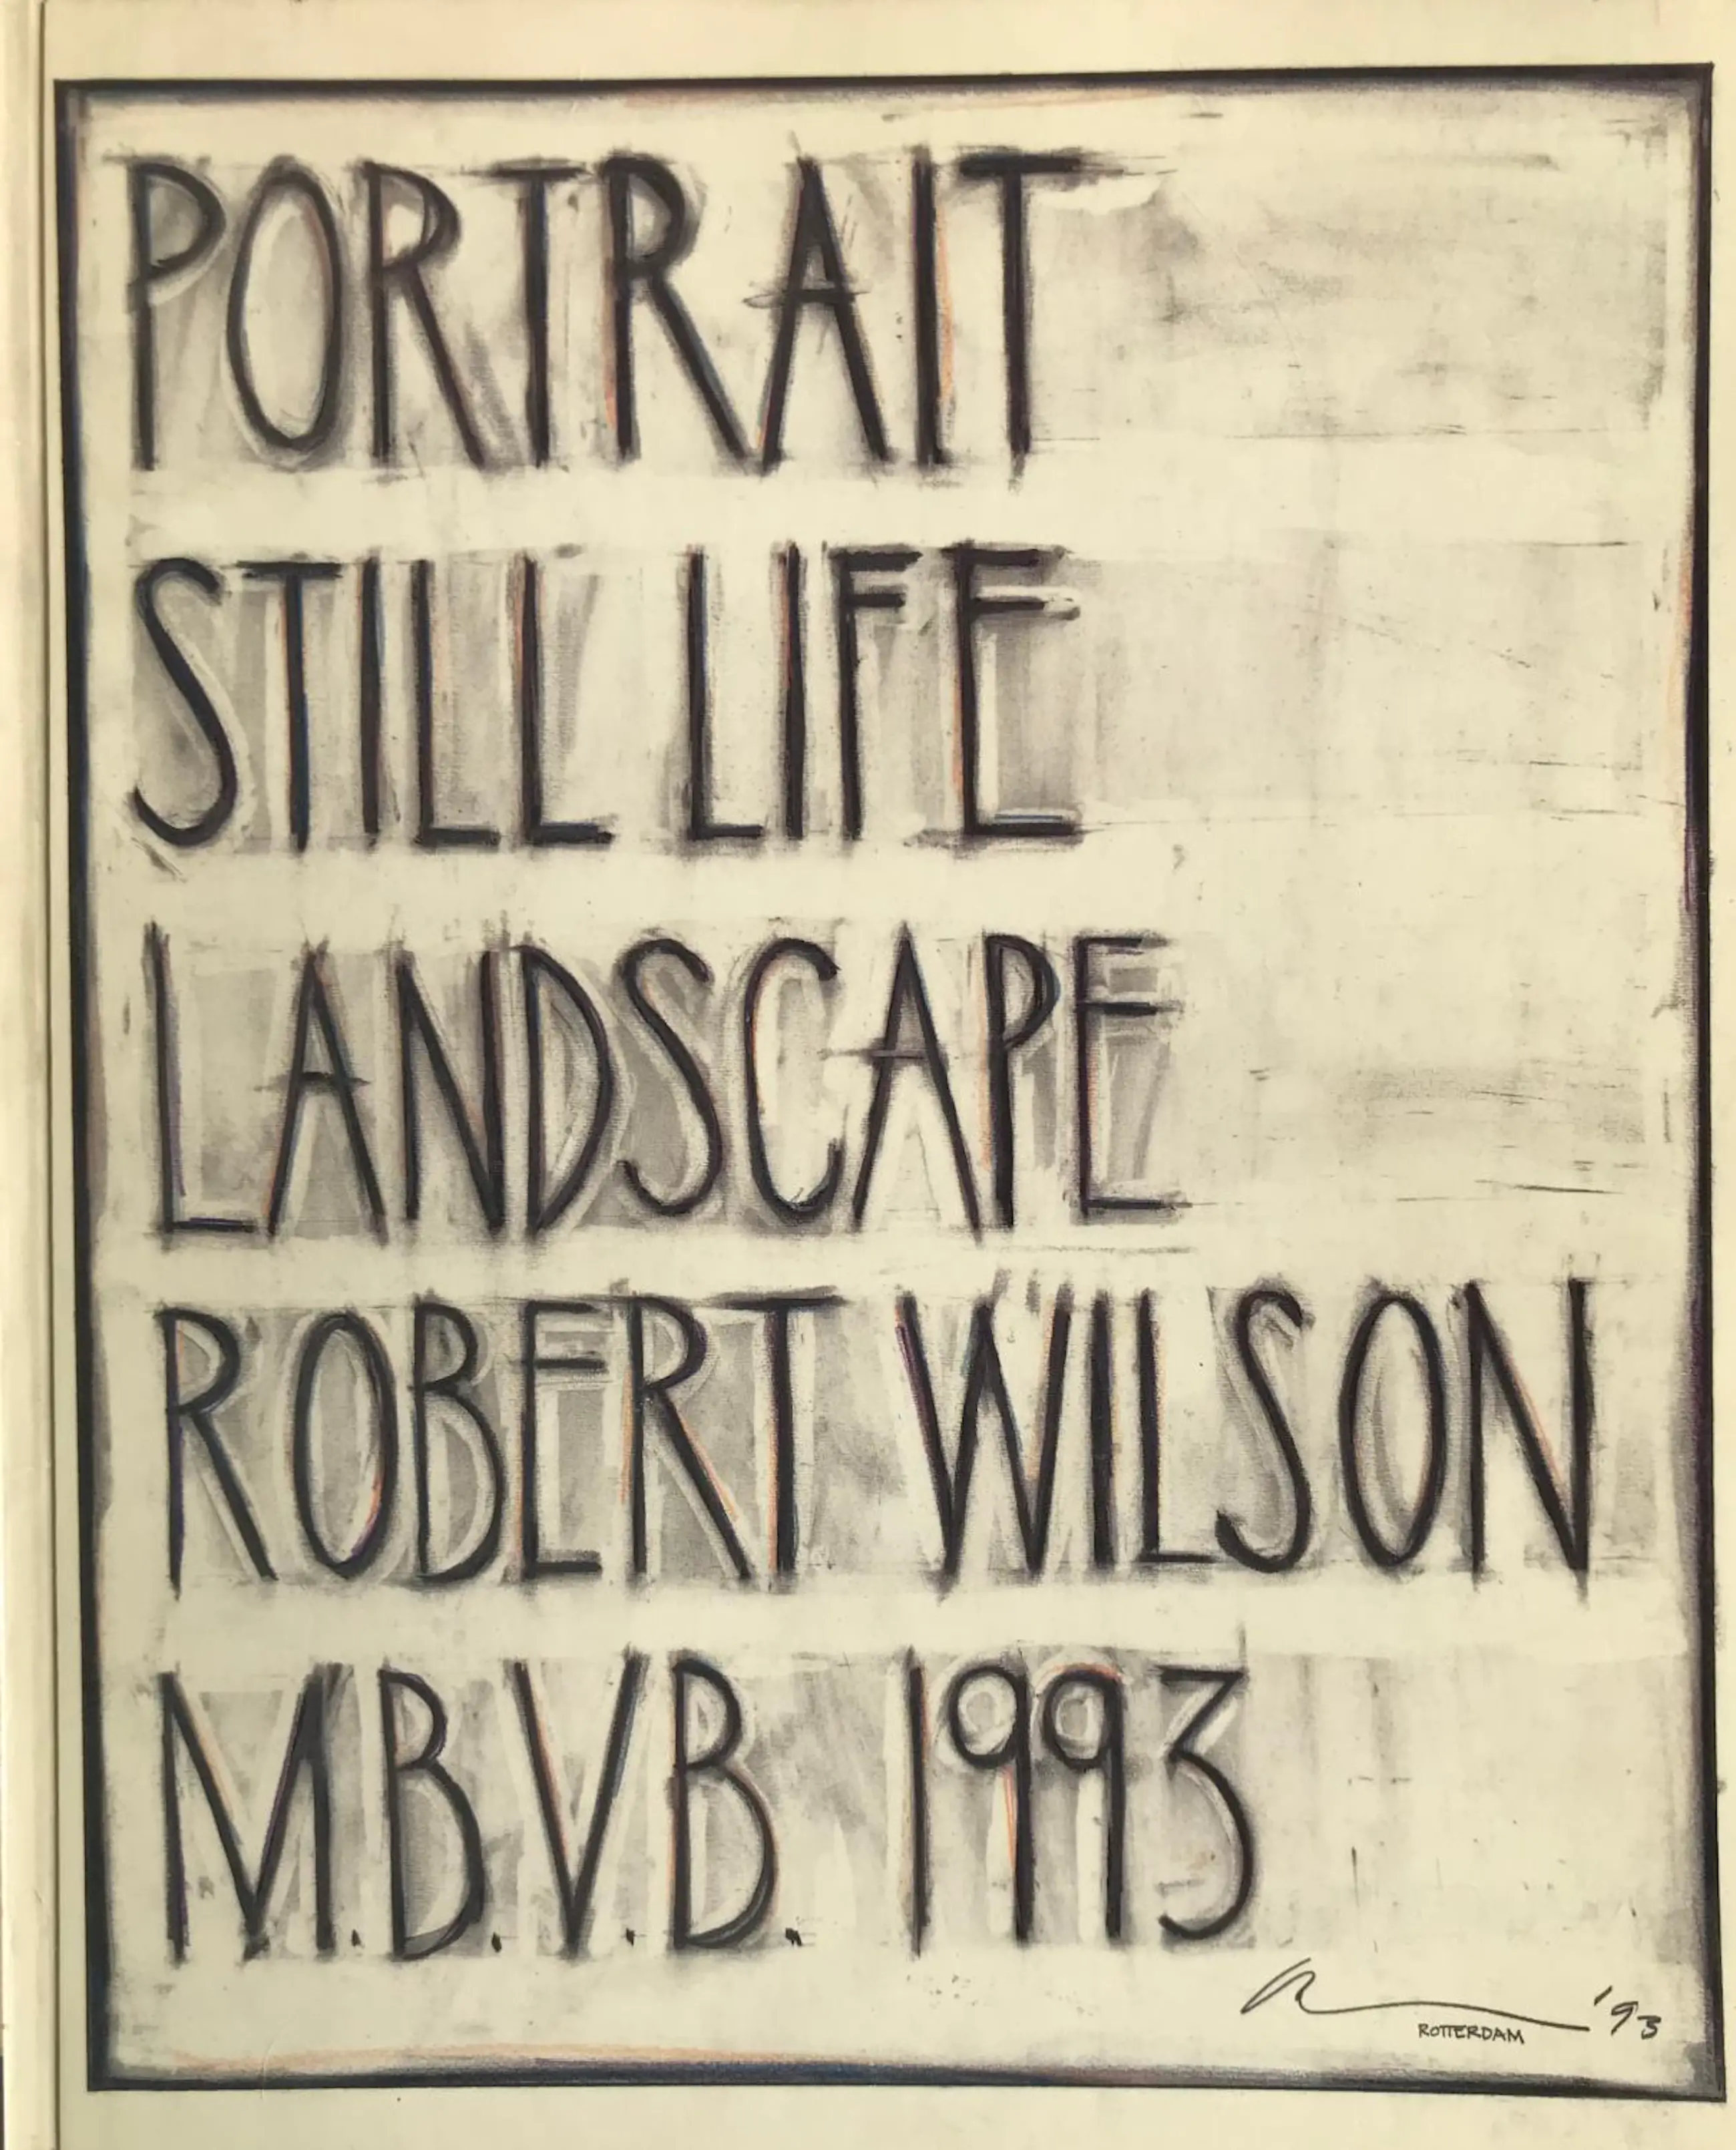 PORTRAIT
STILL LIFE
LANDSCAPE
ROBERT WILSON
M.B.V.B. 1993
'93
ROTTERDAM